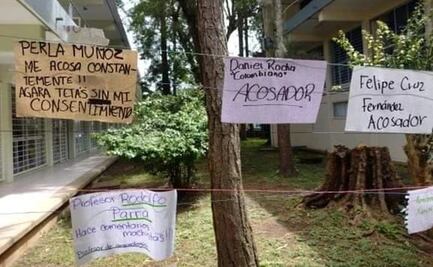 PERLA MUÑOZ
ME ACOSA CONSTAN-
TEMENTE !!
AGARA TETAS SIN MI
CONSENTIMIENTO
Daniel Rocha
"Colombiano"
ACOSADOR
Felipe Cruz
Fernández
Acosador
Profesor Rodolfo
Parra
Hace comentarios
machistas!!
Profesor de